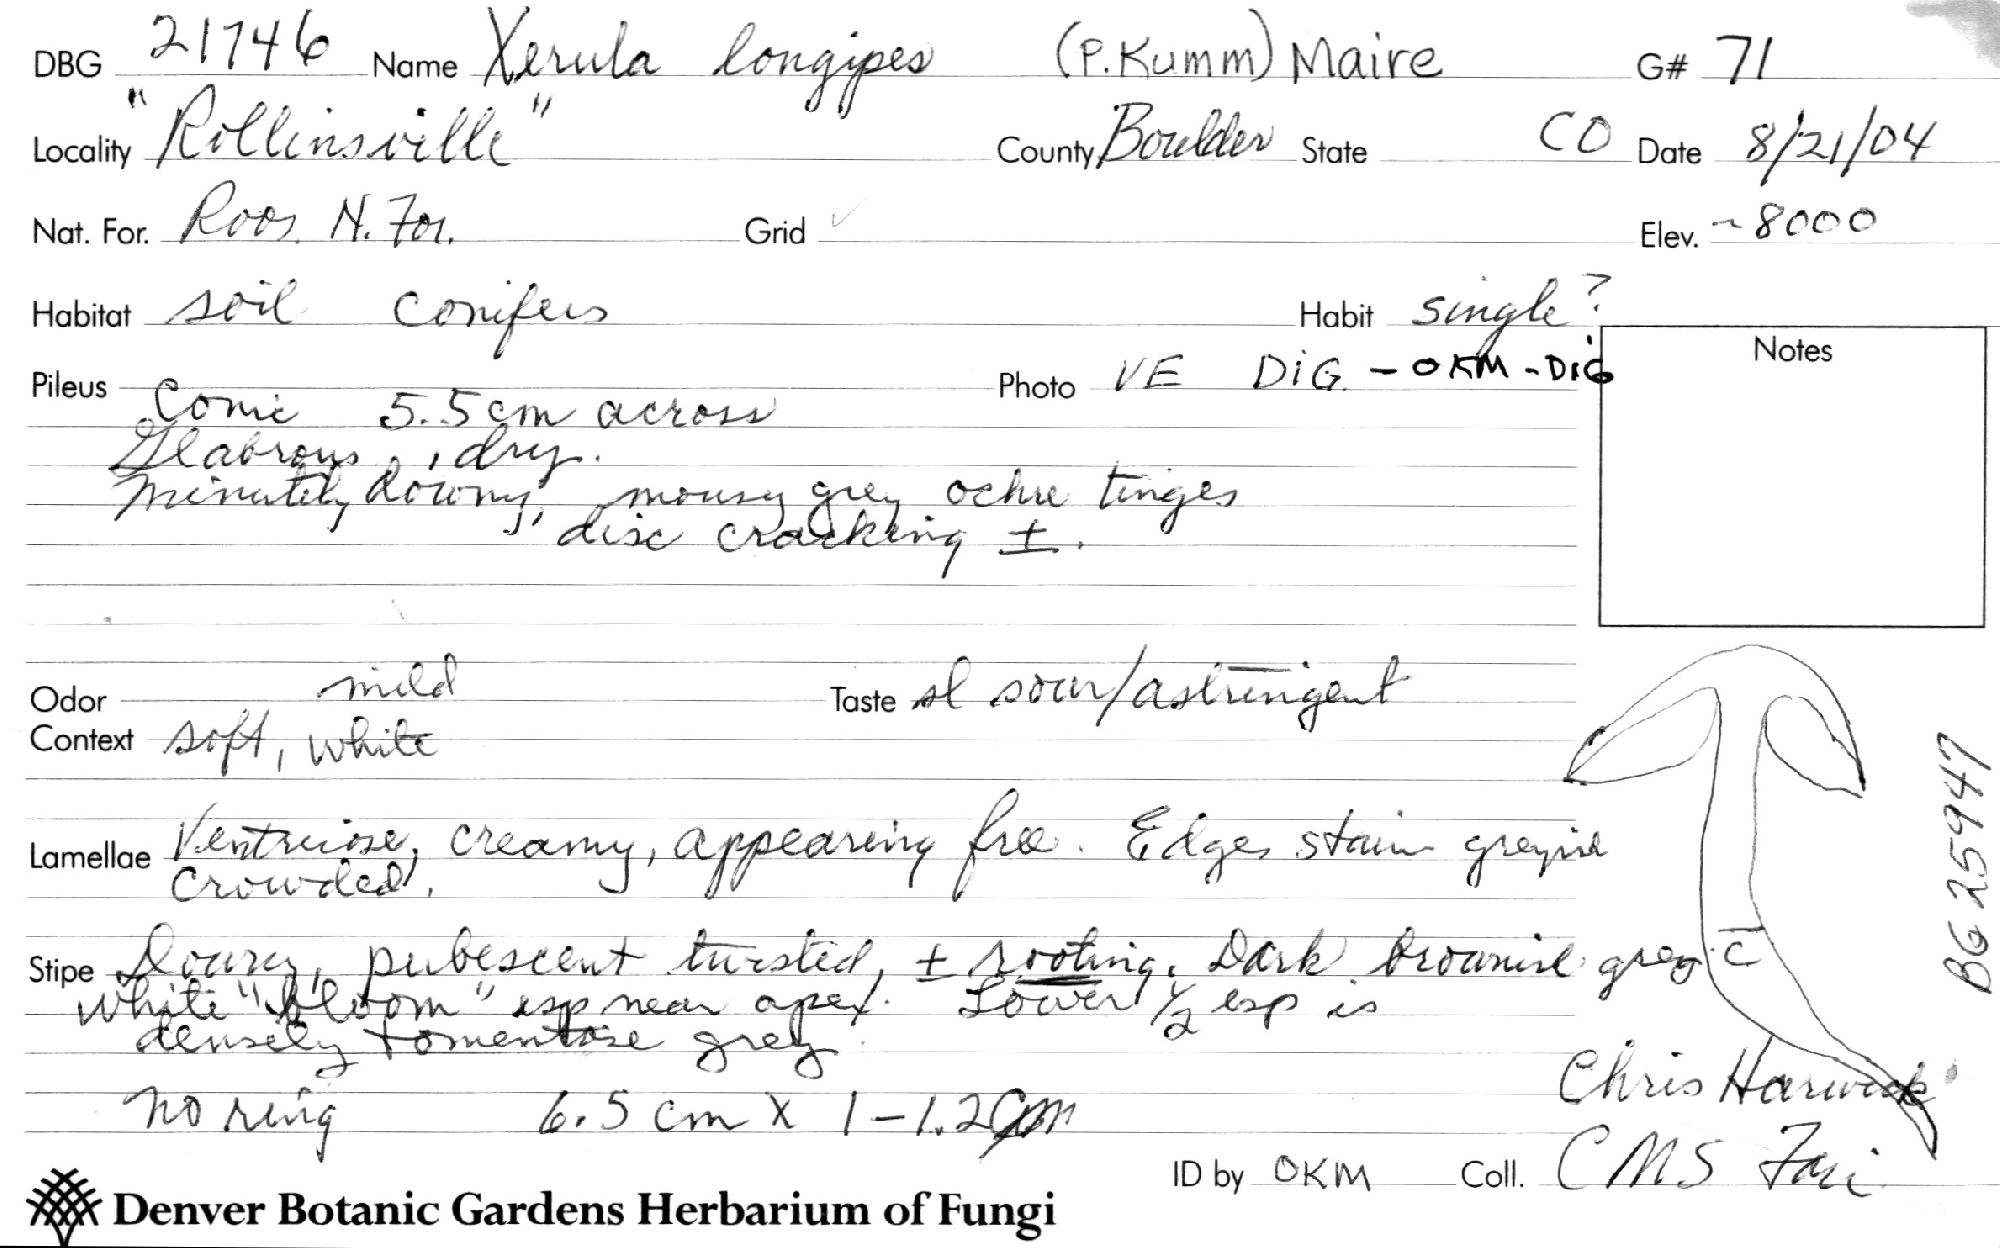 DBG 21746 Name Xerula longipes (P.Kumm) Maire G# 71
Locality "Rollinsville" County Boulder State CO Date 8/21/04
Nat. For. Roos. N. For. Grid Elev. ~8000
Habitat soil conifers Habit single?
Pileus Conic 5.5 cm across Photo VE DIG. - OKM - DIG
Glabrous, dry.
Minutely downy, mousy grey ochre tinges
disc cracking ±.
Notes
Odor mild Taste sl sour/astringent
Context soft, white
Lamellae Ventricose, creamy, appearing free. Edges stain greyish
Crowded.
Stipe Downy, pubescent twisted, ± rooting. Dark brownish grey c
white "bloom" esp near apex. Lower 1/2 esp is
densely tomentose grey.
no ring 6.5 cm X 1-1.2 cm
Chris Harwick
ID by OKM Coll. CMS Fair
Denver Botanic Gardens Herbarium of Fungi
BG 25947